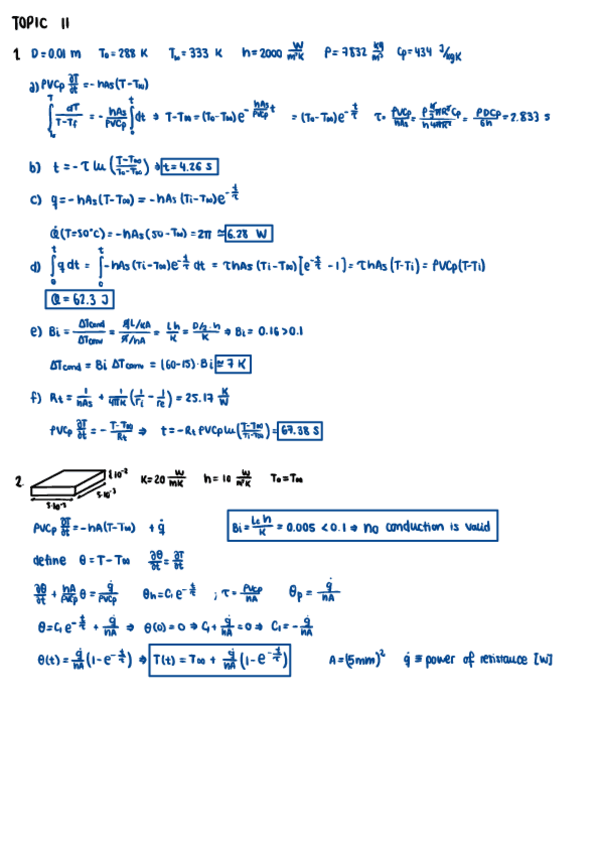 TOPIC 11
1. D=0.01 m T₀=288 K T∞=333 K h=2000 W/m²K ρ=7832 kg/m³ Cp=434 J/kgK
a) ρVCp ∂T/∂t = -hAs(T-T∞)
∫ dT/(T-Tf) = -hAs/ρVCp ∫₀ᵗ dt ⇒ T-T∞=(T₀-T∞)e^(-hAs/ρVCp t) = (T₀-T∞)e^(-t/τ) τ= ρVCp/hAs = = ρDCp/6h = 2.833 s
b) t=-τ ln (T-T∞/T₀-T∞) ⇒ t=4.26 s
c) q=-hAs(T-T∞)=-hAs(Ti-T∞)e^(-t/τ)
Q̇(T=50°C)=-hAs(50-T∞)=2π ≃ 6.28 W
d) ∫₀ᵗ q dt = ∫₀ᵗ -hAs(Ti-T∞)e^(-t/τ) dt = τhAs(Ti-T∞)[e^(-t/τ) -1]=τhAs(T-Ti)=ρVCp(T-Ti)
Q=62.3 J
e) Bi = ΔTcond/ΔTconv = q̇L/kA / q̇/hA = Lh/K = D/2·h/K ⇒ Bi=0.16>0.1
ΔTcond=Bi ΔTconv=(60-15)·Bi ≃ 7 K
f) Rt= 1/hAs + 1/4πK (1/ri - 1/re)=25.17 K/W
ρVCp ∂T/∂t = -(T-T∞)/Rt ⇒ t=-Rt ρVCp ln(T-T∞/Ti-T∞)= 67.38 s
2. 2·10⁻² 5·10⁻³ 5·10⁻³ K=20 W/mK h=10 W/m²K T₀=T∞
ρVCp ∂T/∂t = -hA(T-T∞) +q̇ Bi= Lc h/K = 0.005 <0.1 ⇒ no conduction is valid
define θ=T-T∞ ∂θ/∂t = ∂T/∂t
∂θ/∂t + hA/ρVCp θ = q̇/ρVCp θh=C₁e^(-t/τ) ; τ= ρVCp/hA θp= q̇/hA
θ=C₁e^(-t/τ) + q̇/hA ⇒ θ(0)=0 ⇒ C₁+ q̇/hA =0 ⇒ C₁=- q̇/hA
θ(t)= q̇/hA (1-e^(-t/τ)) ⇒ T(t)=T∞ + q̇/hA (1-e^(-t/τ)) A=(5mm)² q̇ ≡ power of resistance [W]